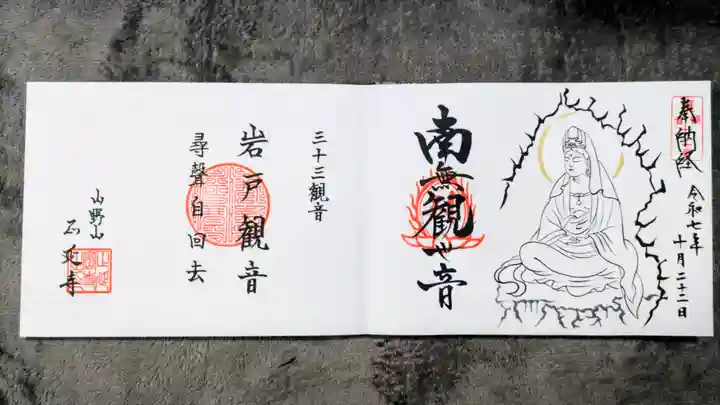 奉納経
令和七年
十月二十二日
南無観世音
三十三観音
岩戸観音
尋聲自回去
山野山
正延寺